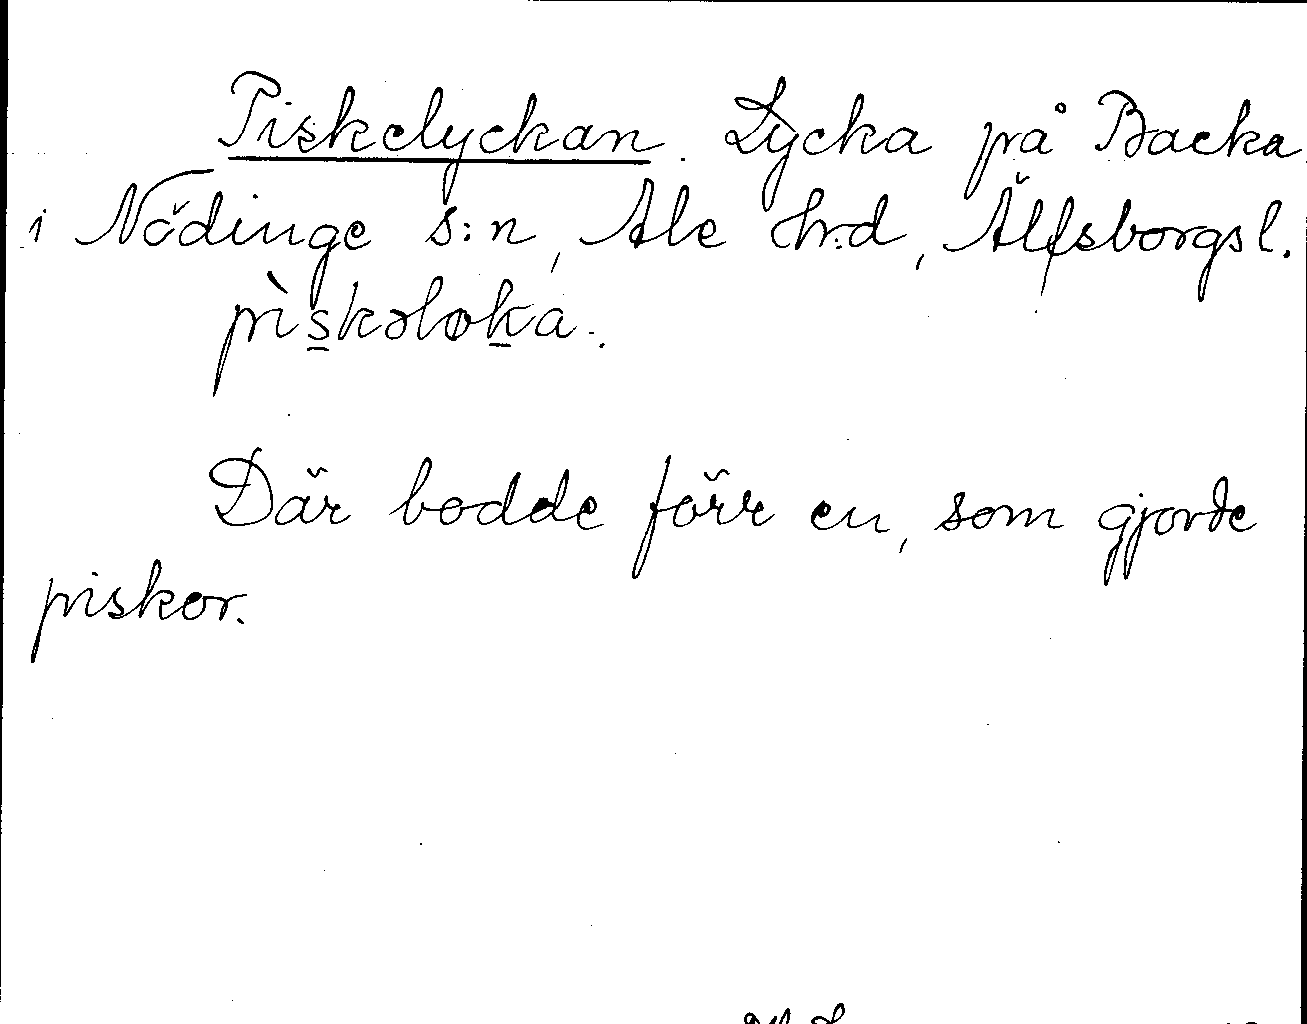 Piskelyckan. Lycka på Backa
i Nödinge s:n, Ale hr:d, Älfsborgs l.
pìskəloka.
Där bodde förr en, som gjorde
piskor.